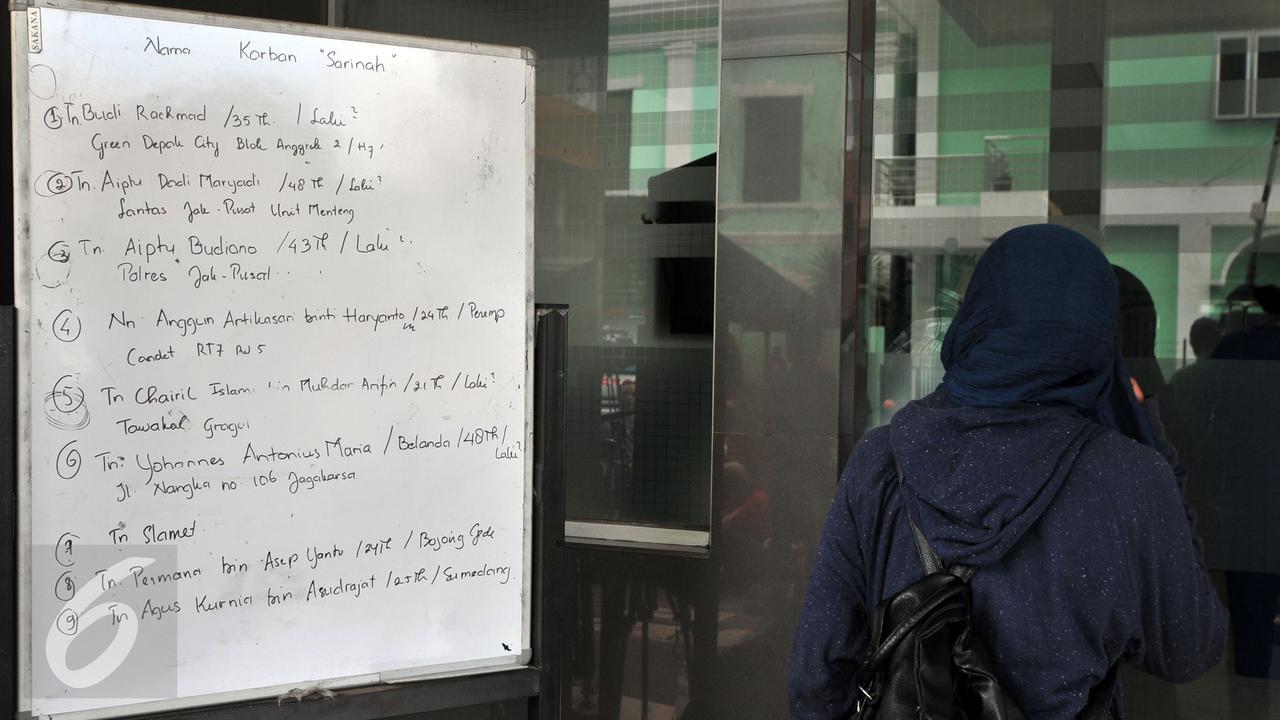 SAKANA
Nama Korban "Sarinah"
1 Tn. Budi Rachmad / 35 Th. / Laki²
Green Depok City Blok Anggrek 2 / H7
2 Tn. Aiptu Dodi Maryadi / 48 Th / Laki²
Lantas Jak-Pusat Unit Menteng
3 Tn. Aiptu Budiono / 43 Th / Laki².
Polres Jak-Pusat
4 Nn. Anggun Artikasari binti Haryanto / 24 Th / Peremp
Condet RT7 RW 5
5 Tn Chairil Islam bin Muhdar Arifin / 21 Th / Laki²
Tawakal Grogol
6 Tn. Yohannes Antonius Maria / Belanda / 48 Th / Laki²
Jl. Nangka no. 106 Jagakarsa
7 Tn Slamet
8 Tn. Permana bin Asep Yanto / 24 Th / Bojong Gede
9 Tn Agus Kurnia bin Asudrajat / 25 Th / Sumedang.
6